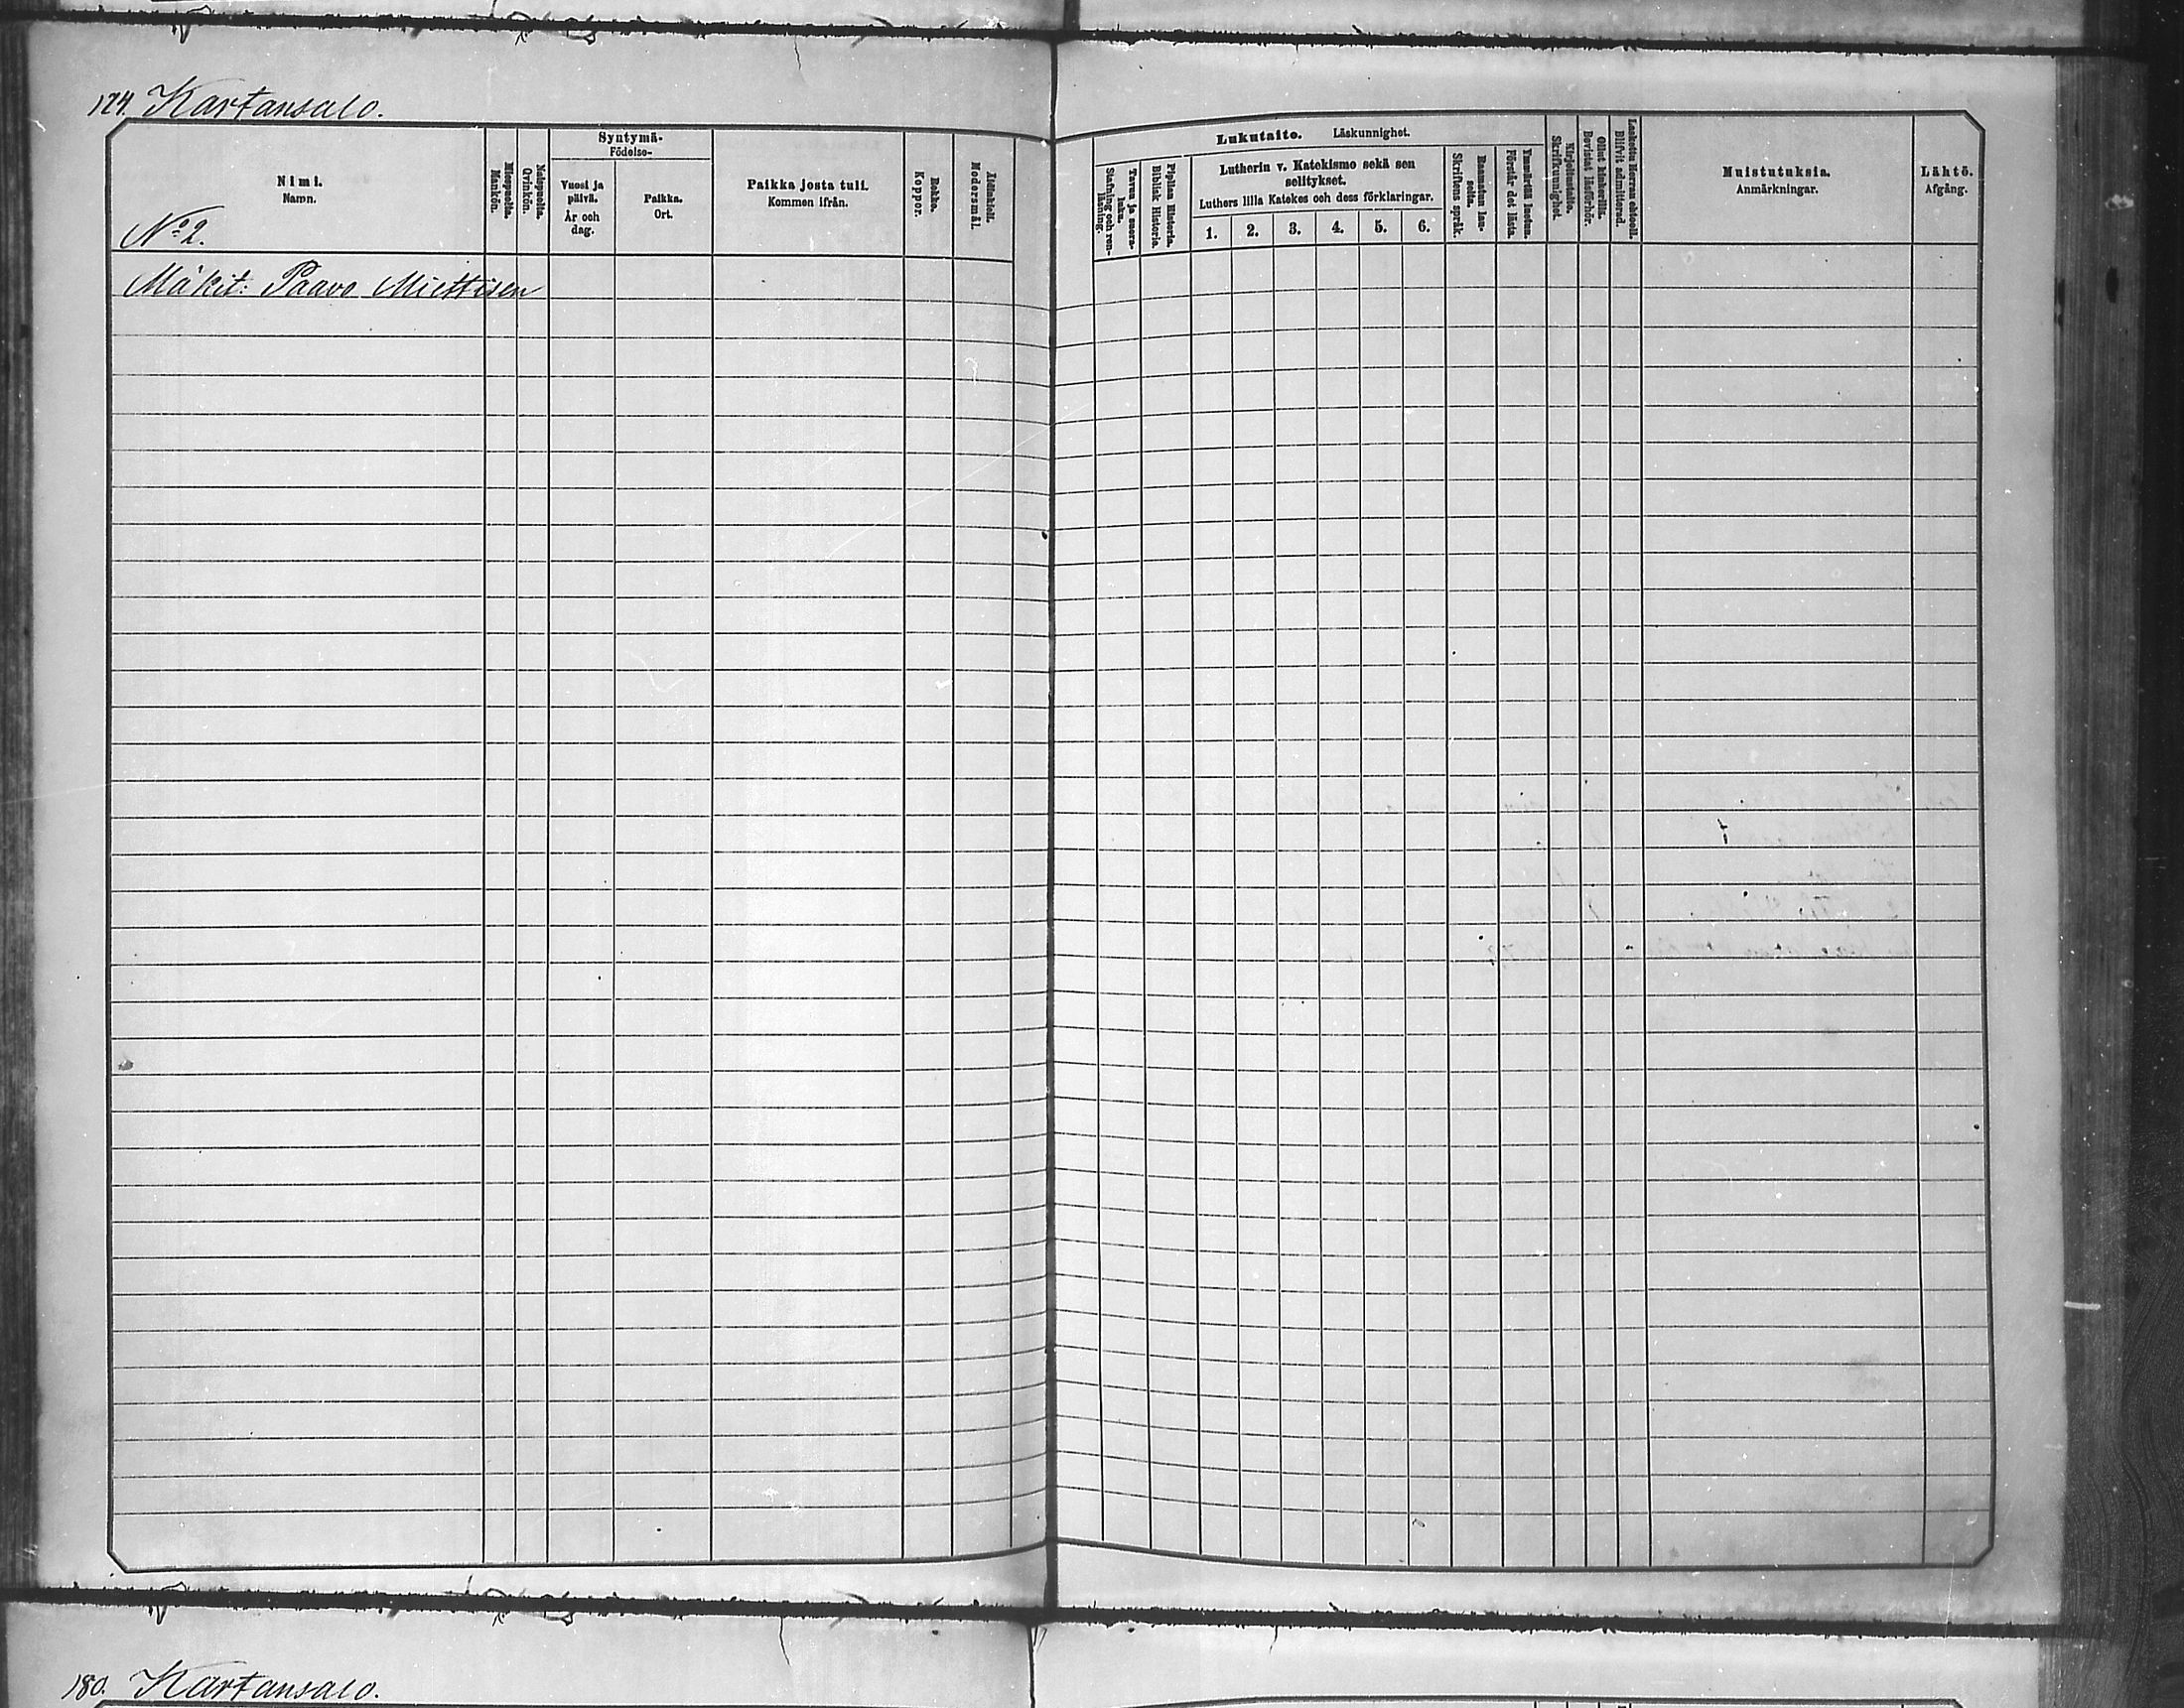 174. Kartansalo.
Nimi.
Namn.
No 2.
Miespuolia.
Mankön.
Naispuolia.
Qvinkön.
Syntymä-
Födelse-
Vuosi ja
päivä.
År och
dag.
Paikka.
Ort.
Paikka josta tuli.
Kommen ifrån.
Rokko.
Koppor.
Äidinkieli.
Modersmål.
Lukutaito. Läskunnighet.
Tavuu ja suora-
luku.
Stafning och ren-
läsning.
Piplian Historia.
Biblisk Historia.
Lutherin v. Katekismo sekä sen
selitykset.
Luthers lilla Katekes och dess förklaringar.
1. 2. 3. 4. 5. 6.
Raamatun lau-
seita.
Skriftens språk.
Ymmärtää luetun.
Förstår det lästa.
Kirjoitustaito.
Skrifkunnighet.
Ollut kinkerillä.
Bevistat läsförhör.
Laskettu Herran ehtooll.
Blifvit admitterad.
Muistutuksia.
Anmärkningar.
Lähtö.
Afgång.
Mäkit: Paavo Miettisen
180. Kartansalo.